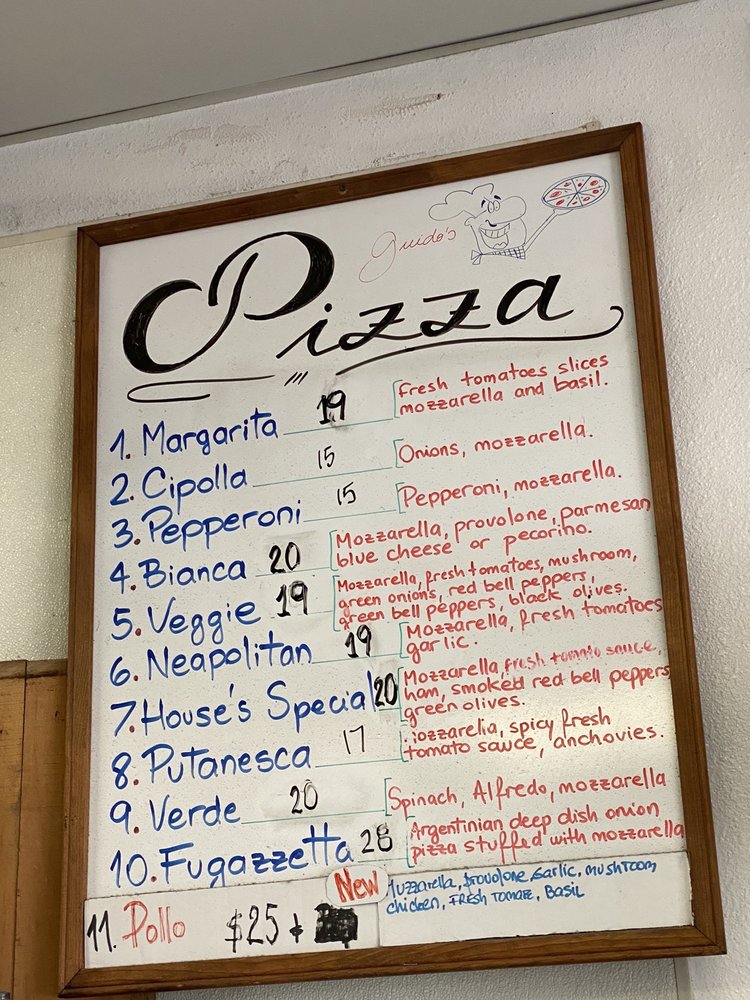 Guido's
Pizza
1. Margarita 19
Fresh tomatoes slices
mozzarella and basil.
2. Cipolla 15
Onions, mozzarella.
3. Pepperoni 15
Pepperoni, mozzarella.
4. Bianca 20
Mozzarella, provolone, parmesan
blue cheese or pecorino.
5. Veggie 19
Mozzarella, fresh tomatoes, mushroom,
green onions, red bell peppers,
green bell peppers, black olives.
6. Neapolitan 19
Mozzarella, fresh tomatoes
garlic.
7. House's Special 20
Mozzarella, fresh tomato sauce,
ham, smoked red bell peppers
green olives.
8. Putanesca 17
ozzarella, spicy fresh
tomato sauce, anchovies.
9. Verde 20
Spinach, Alfredo, mozzarella
10. Fugazzetta 28
Argentinian deep dish onion
pizza stuffed with mozzarella
New
11. Pollo $25
Muzzarella, Provolone, Garlic, mushroom
chicken, FRESH Tomate, Basil